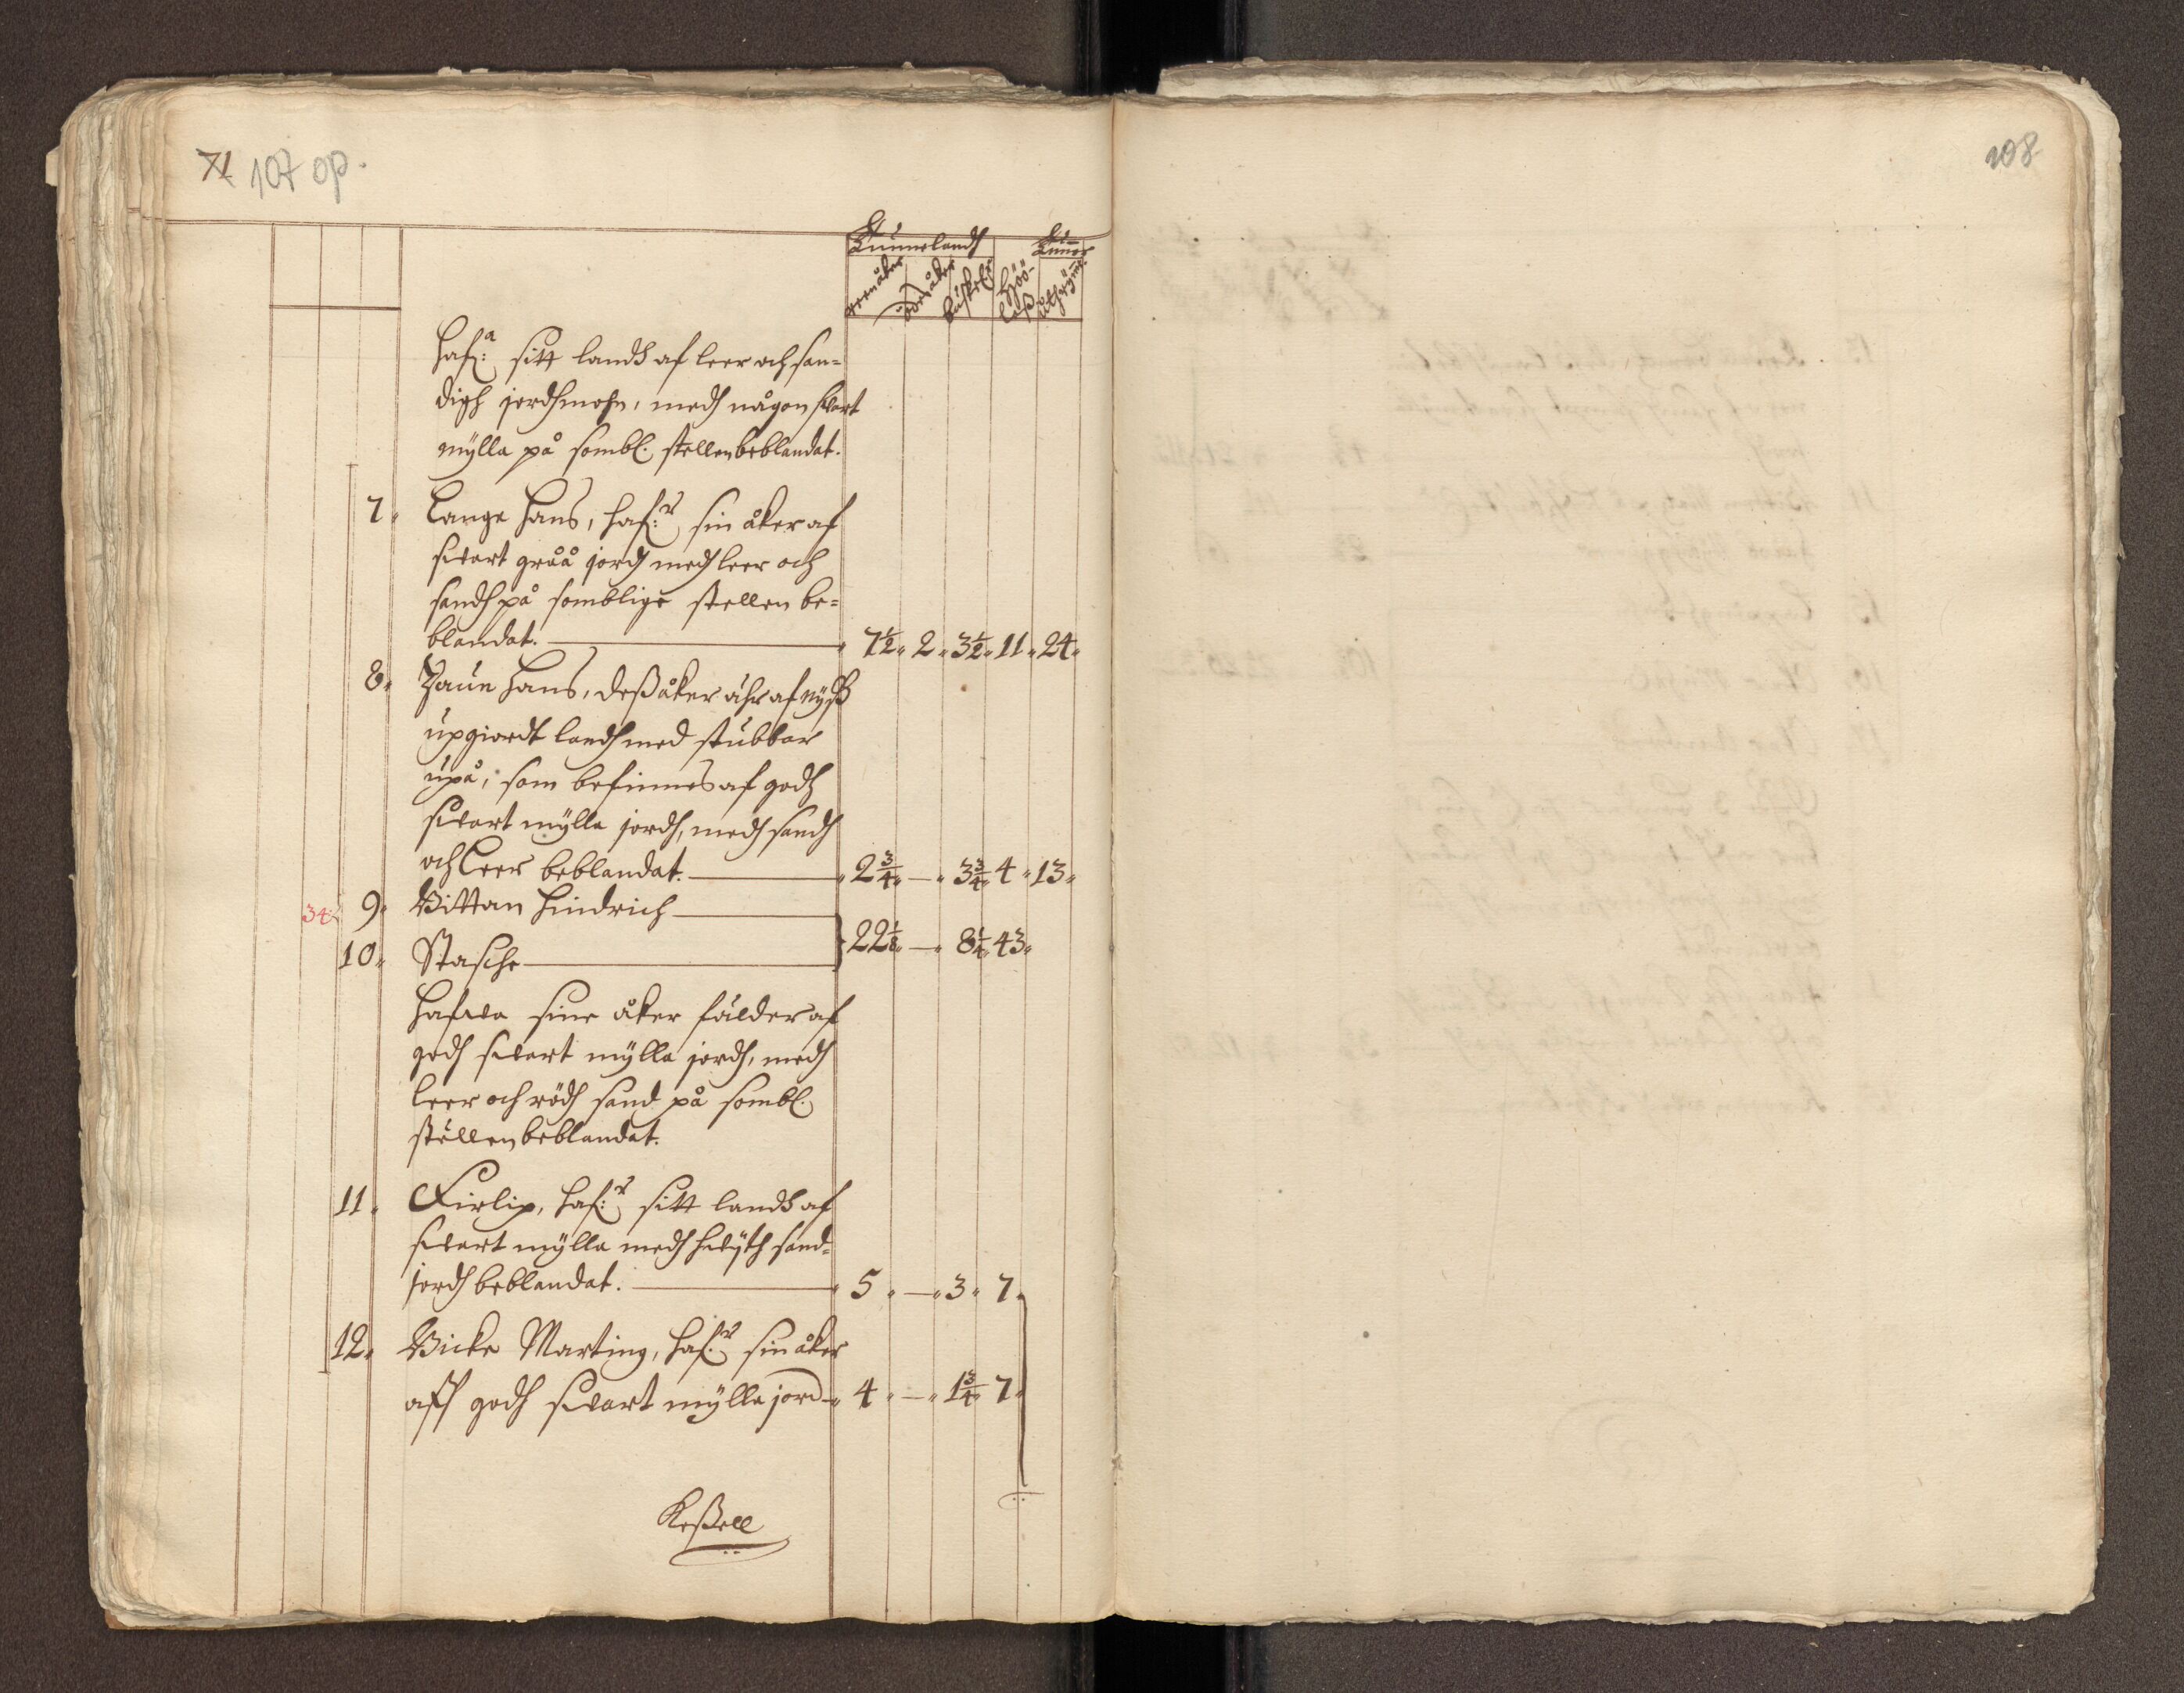 71 107 op.
108
Tunnelandh
Tunner
reenåker
ödesåker
buskeland
Höö-
laß
Haf:a sitt landh af leer och san=
digh jordhmohn, medh någon svart
mylla på sombl. stellen beblandat.
7. Lange Hans, haf:r sin åker af
swart gråå jord medh leer och
sandh på somblige stellen be=
blandat. 7½ 2 3½ 11 24
8. Zaun Hans, deß åker ähr af nyß
upgiordt landh med stubbar
upå, som befinnes af godh
swart mylla jordh, medh sandh
och Leer beblandat. 2¾ — 3¾ 4 13
34 9. Vittan Hindrich
10. Stasche 22⅛ — 8¼ 43
Hafwa sine åker fälder af
godh swart mylla jordh, medh
leer och rödh sand på sombl.
stellen beblandat.
11. Firlip, haf:r sitt landh af
swart mylla medh hwyth sand=
jordh beblandat. 5 — 3 7
12. Vicke Marting, haf:r sin åker
aff godh swart mylla jord 4 — 1¾ 7
Keßell